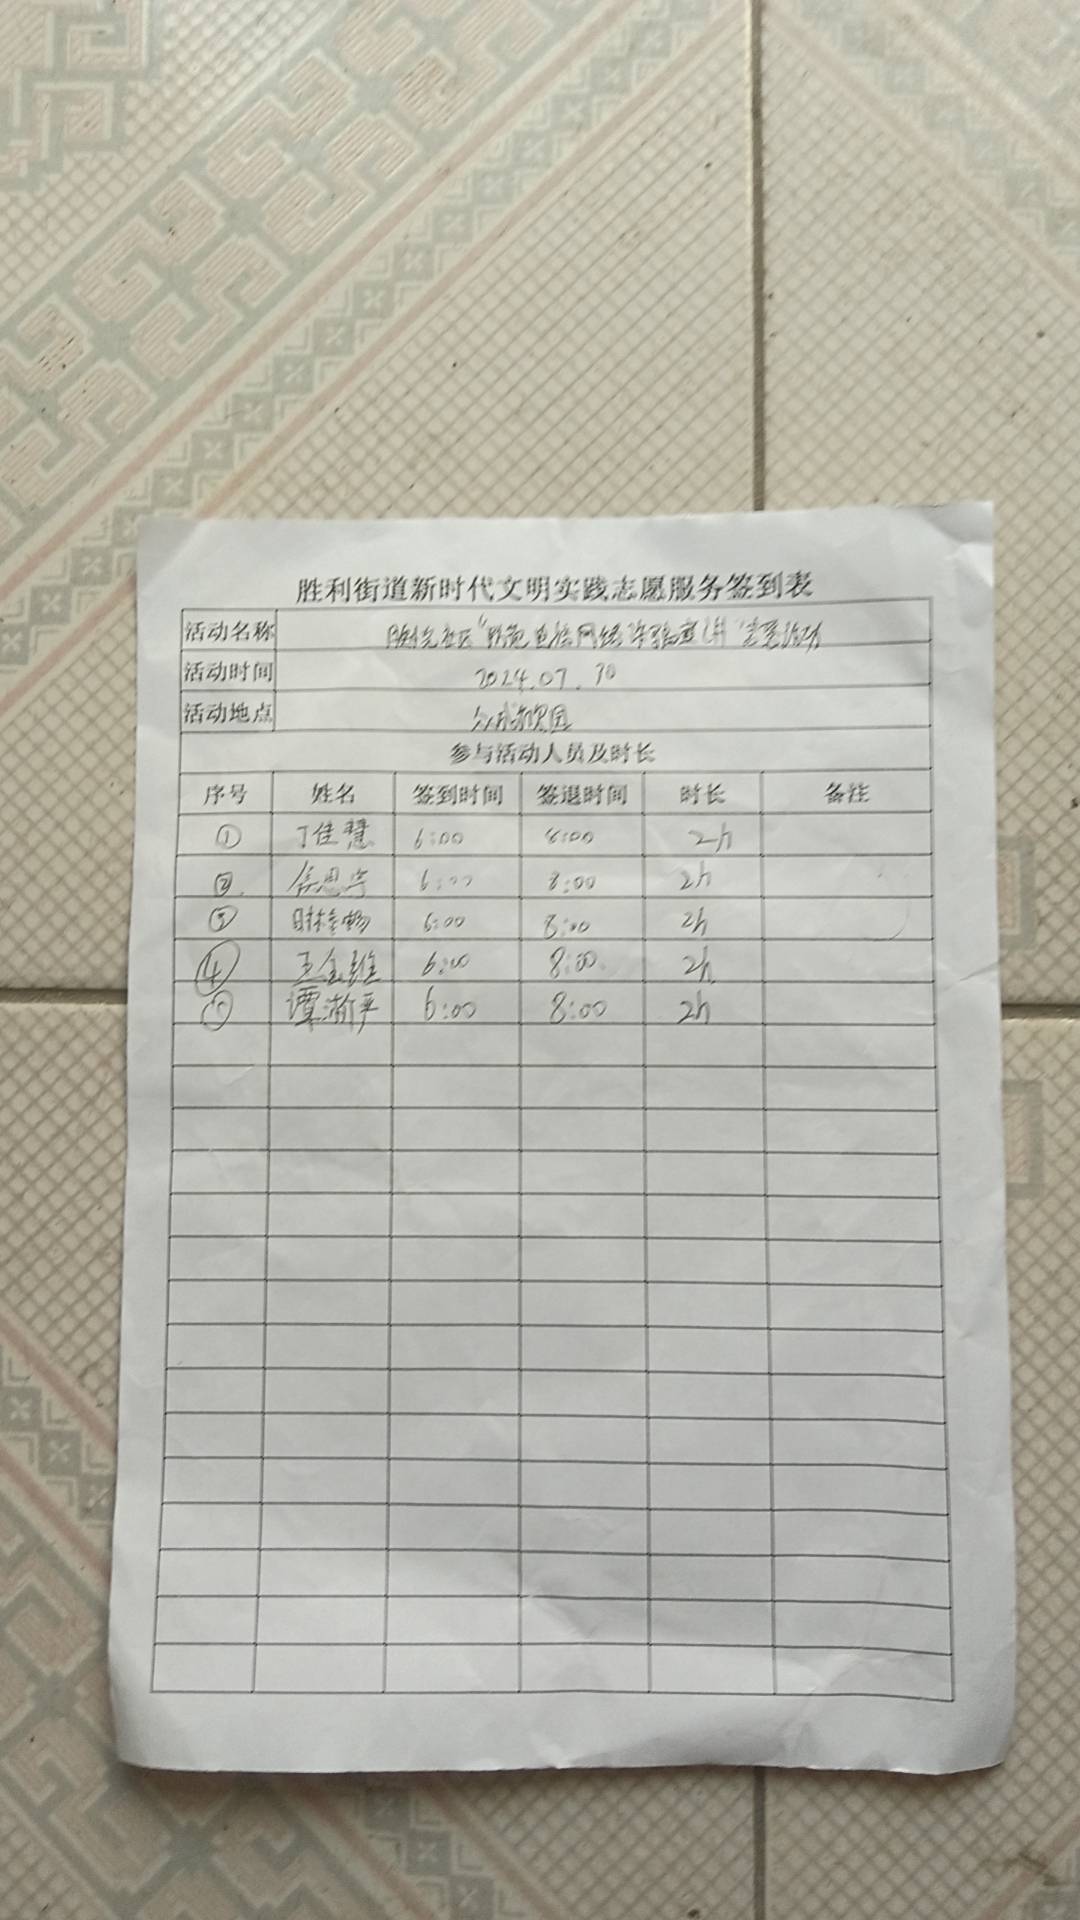 胜利街道新时代文明实践志愿服务签到表
活动名称 社区"防范电信网络诈骗 宣传活动
活动时间 2024.07.30
活动地点
参与活动人员及时长
序号 姓名 签到时间 签退时间 时长 备注
① 丁佳慧 6:00 8:00 2h
② 侯思宇 6:00 8:00 2h
③ 6:00 8:00 2h
④ 王金维 6:00 8:00 2h
谭瀚平 6:00 8:00 2h